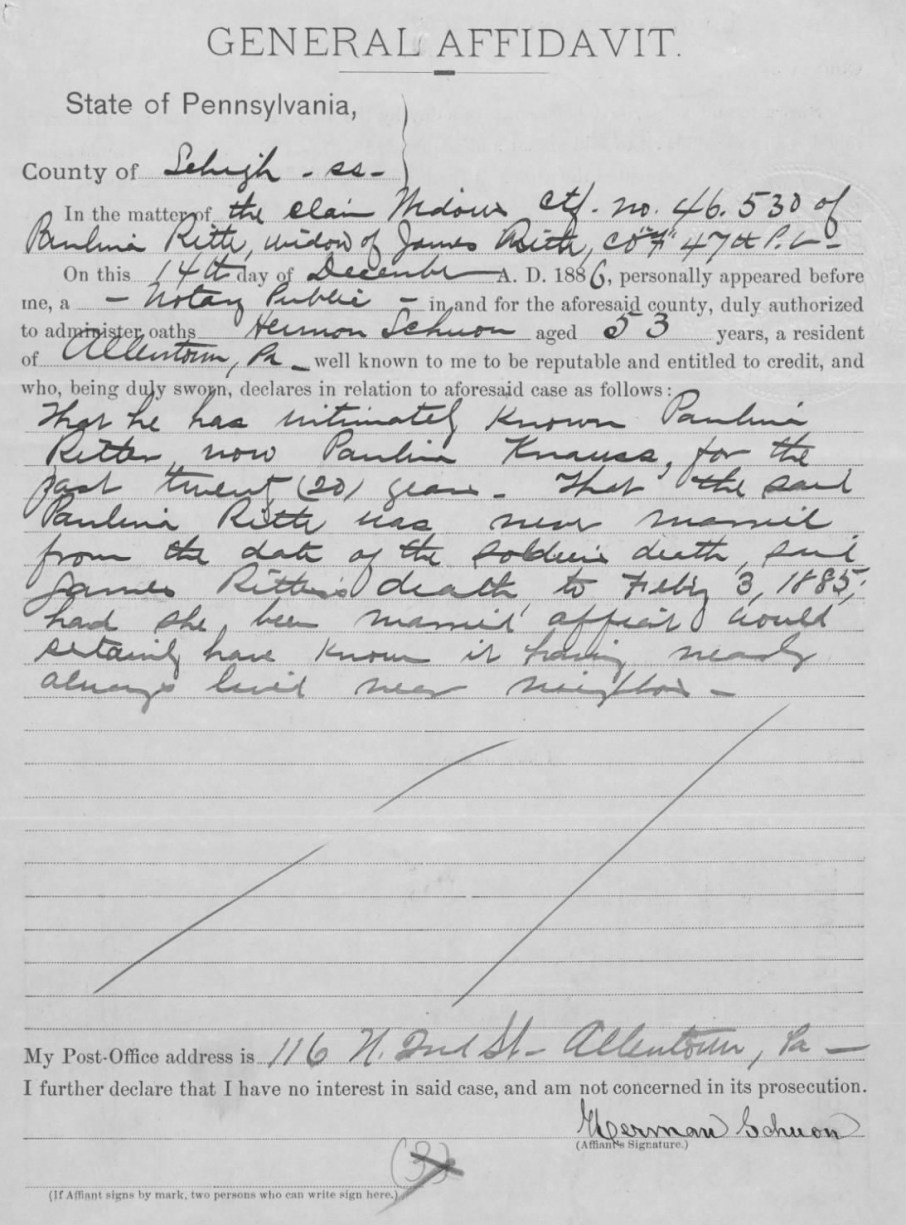 GENERAL AFFIDAVIT.
State of Pennsylvania,
County of Lehigh - ss -
In the matter of the claim Widows Ctf. no. 46.530 of
Paulina Ritter, widow of James Ritter, Co "F" 47th P.V.
On this 14th day of December A. D. 1886, personally appeared before
me, a - Notary Public - in and for the aforesaid county, duly authorized
to administer oaths Hermon Schuon aged 53 years, a resident
of Allentown, Pa - well known to me to be reputable and entitled to credit, and
who, being duly sworn, declares in relation to aforesaid case as follows:
That he has intimately known Paulina
Ritter, now Paulina Knauss, for the
past twenty (20) years - That the said
Paulina Ritter was never married
from the date of the soldiers death, said
James Ritter's death, to Feb'y 3, 1885,
had she been married affiant would
certainly have known it having nearly
always lived near neighbor -
My Post-Office address is 116 N. 2nd St - Allentown, Pa -
I further declare that I have no interest in said case, and am not concerned in its prosecution.
Herman Schuon
(Affiant's Signature.)
(3)
(If Affiant signs by mark, two persons who can write sign here.)